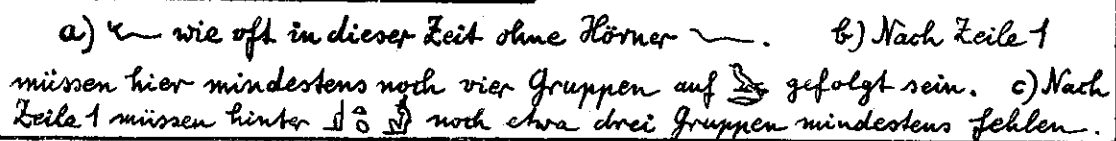 a) 𓆑 wie oft in dieser Zeit ohne Hörner 𓆑. b) Nach Zeile 1
müssen hier mindestens noch vier Gruppen auf gefolgt sein. c) Nach
Zeile 1 müssen hinter noch etwa drei Gruppen mindestens fehlen.